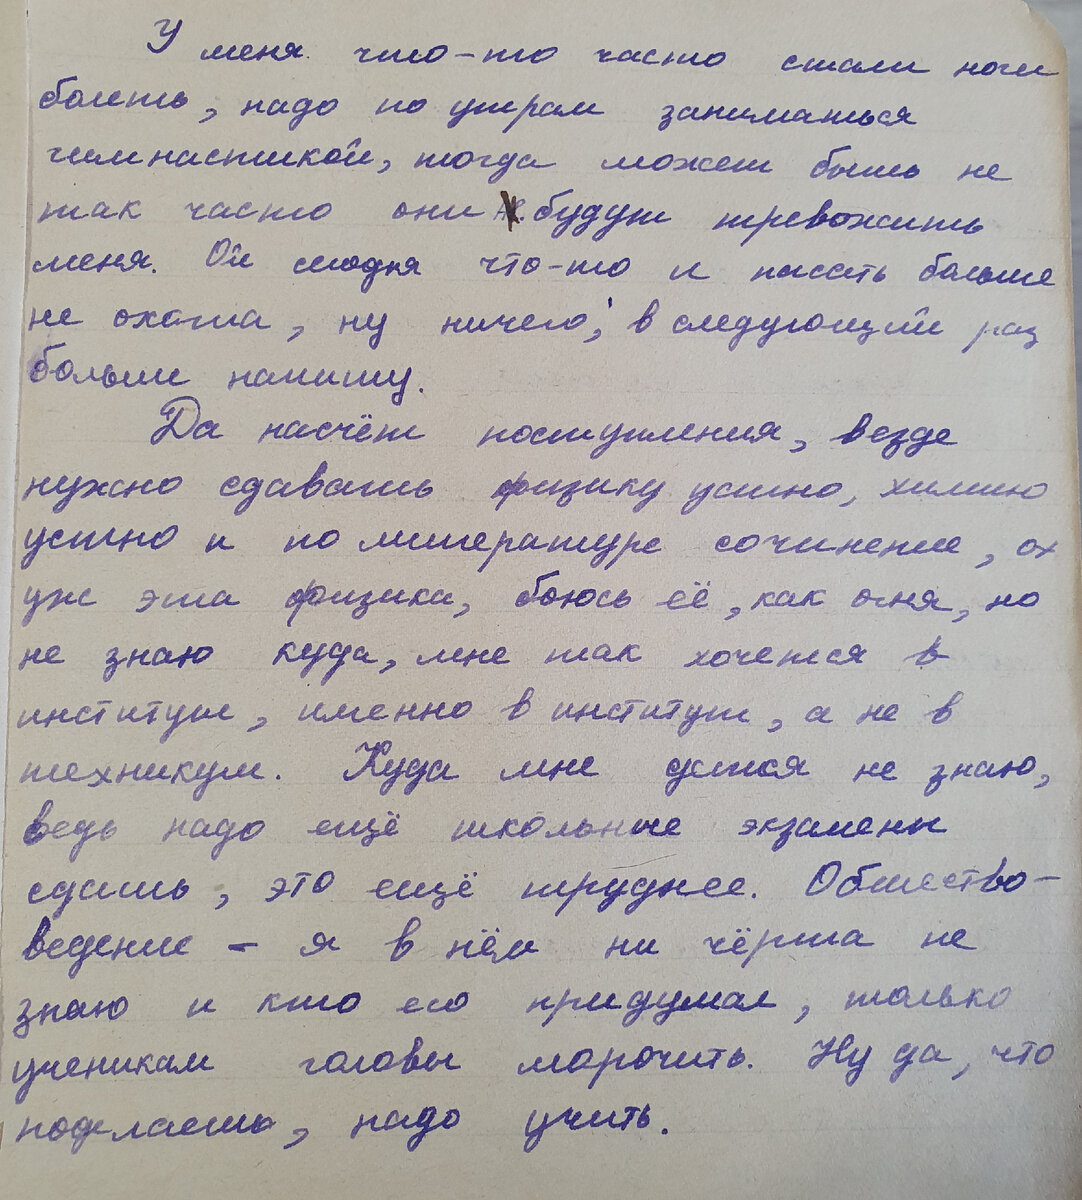 У меня что-то часто стали ноги
болеть, надо по утрам заниматься
гимнастикой, тогда может быть не
так часто они будут тревожить
меня. Ой сегодня что-то и писать больше
не охота, ну ничего, в следующий раз
больше напишу.
Да насчёт поступления, везде
нужно сдавать физику устно, химию
устно и по литературе сочинение, ох
уж эта физика, боюсь её, как огня, но
не знаю куда, мне так хочется в
институт, именно в институт, а не в
техникум. Куда мне деться не знаю,
ведь надо ещё школьные экзамены
сдать, это ещё труднее. Общество-
ведение – я в нём ни чёрта не
знаю и кто его придумал, только
ученикам головы морочить. Ну да, что
поделаешь, надо учить.